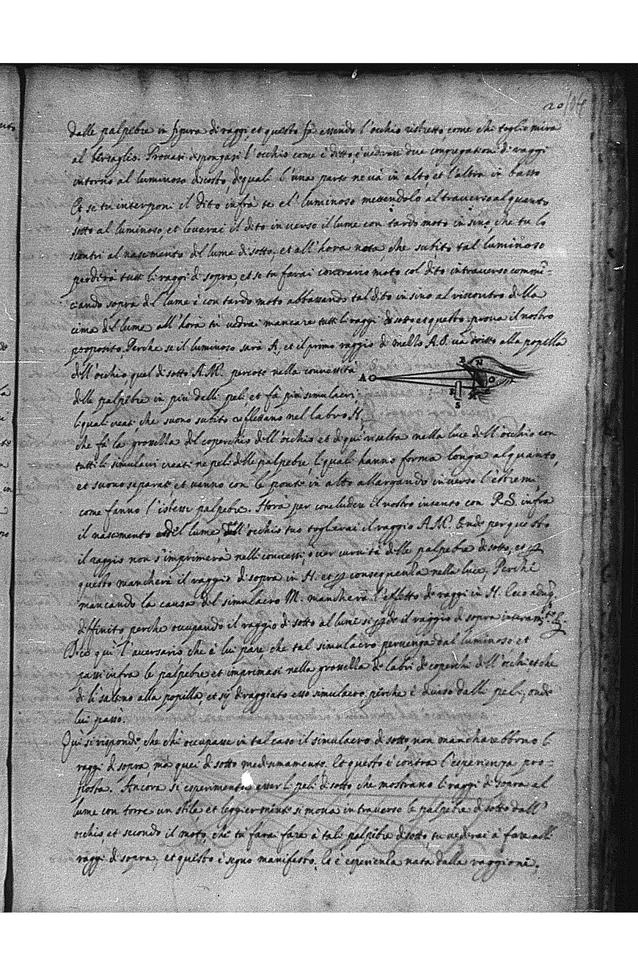 20/04
dalle palpebre in figura di raggi, et questo fà essendo l'occhio ristretto come che toglie mira
al bersaglio. Trovasi disponga si l'occhio come è ditto è vederai due congregation di raggi
intorno al luminoso discosto de quali l'una parte ne và in alto, et l'altra in basso
Et se tu interponi il dito infrà te el luminoso mettendolo al traverso alquanto
sotto al luminoso, et leverai il dito in verso il lume con tardo moto in sino, che tu lo
scontri al nascimento del lume di sotto, et all'hora nota, che subito tal luminoso
perderà tutti li raggi di sopra, et se tu farai contrario moto col dito in traverso comin=
ciando sopra del lume è con tardo moto abbassando tal dito in sino al riscontro della
cima del lume all'hora tù vedrai mancare tutti li raggi di sotto, et questo prova il nostro
proposito. Perche se il luminoso sarà A, et il primo raggio di mezzo A.S. và dritto alla popilla
dell'occhio quel di sotto A.M. percote nella convessità
delle palpebre in più delli peli et fà più simulacri
li quali creati, che suono subito reflettano nel labro H.
che fà la grossezza del coperchio dell'occhio et de qui risalta nella luce dell'occhio con
tutti li simulacri creati ne peli delle palpebre, li quali hanno forma longa alquanto,
et suono separati et vanno con le ponte in alto allargando in verso l'estremi,
come fanno l'istesse palpebre. Hora per concludere il nostro intento con R.S. infra
il nascimento del lume dell'occhio tuo toglierai il raggio A.M. Onde perque sto
il raggio non s'imprimerà nelli convessi, over curvità delle palpebra di sotto, et p
questo mancherà il raggio di sopra in H. et p consequenza nella luce, Perche
mancando la causa del simulacro M. mancherà l'effetto de raggi in H. Ecco adunq
diffinito perche occupando il raggio di sotto al lume si perde il raggio di sopra interam.te
Dice qui l'aversario che è lui pare che tal simulacro pervenga dal luminoso et
passi infra le palpebre et imprimasi nella grossezza de labri de coperchi dell'occhi et che
de lì saltino alla popilla, et sij draggiato esso simulacro, perche è diviso dalli peli, onde
lui passò.
Qui si risponde, che chi occupasse in tal caso il simulacro di sotto, non mancharebbono li
raggi di sopra, mà quei di sotto medesimamente. Et questo è contra l'esperienza pro=
posta. Ancora si esperimenta esser li peli di sotto che mostrano li raggi di sopra al
lume con torre un stile et leggiermente si mova in traverso le palpebra di sotto dall'
occhio et secondo il moto, che tù farai fare à tale palpebre di sotto, tu vederai à fare alli
raggi di sopra, et questo è segno manifesto, Et è esperienza nata dalla raggione,